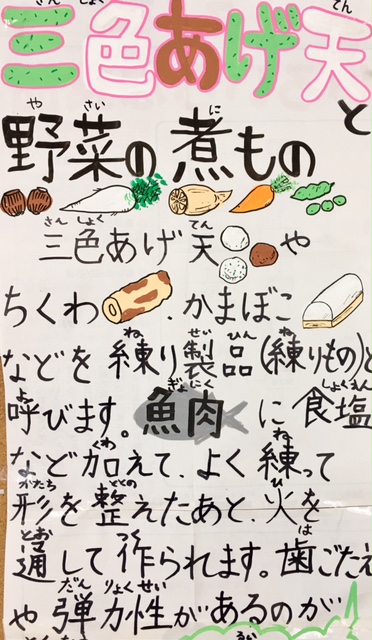 三色あげ天と
野菜の煮もの
三色あげ天や
ちくわ、かまぼこ
などを練り製品(練りもの)と
呼びます。魚肉に食塩
など加えて、よく練って
形を整えたあと、火を
通して作られます。歯ごたえ
や弾力性があるのが